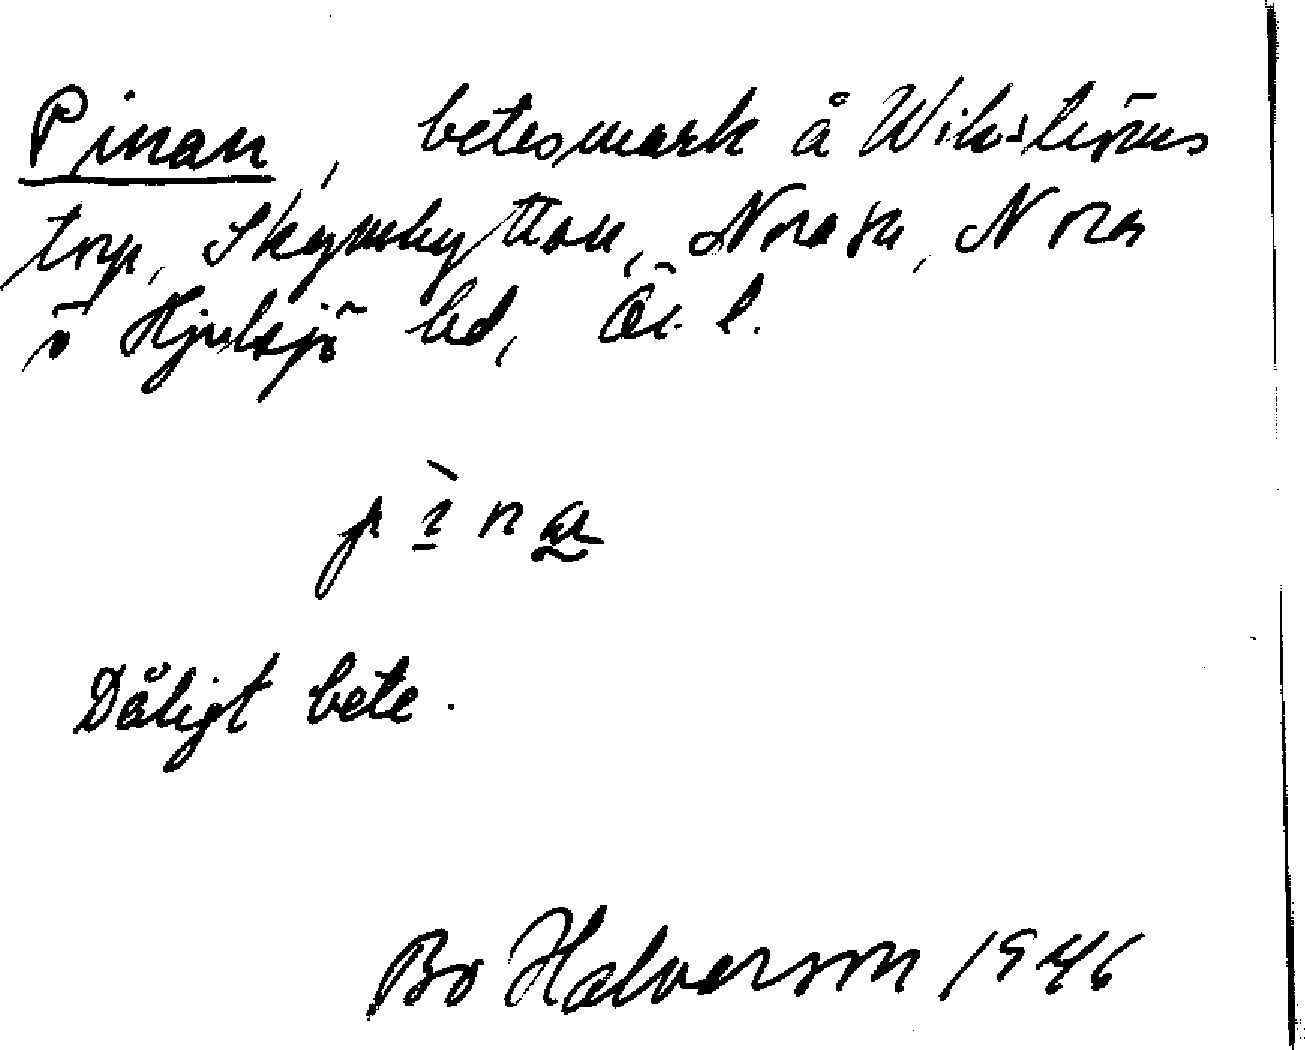 Pinan, betesmark å Wikströms
torp, Skymhyttan, Nora sn, Nora
o Hjulsjö bd, Ör. l.
p ì n a
Dåligt bete.
Bo Halvarson 1946